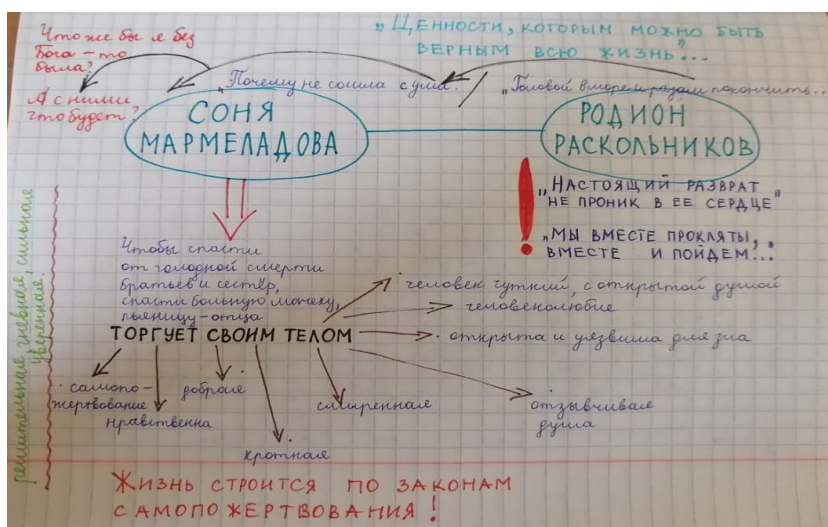 „Ценности, которым можно быть
верным всю жизнь"...
Что же бы я без
Бога – то
была?
А с ними,
что будет?
„Почему не сошла с ума.
„Головой в море и разом покончить...
СОНЯ
МАРМЕЛАДОВА
РОДИОН
РАСКОЛЬНИКОВ
„Настоящий разврат
не проник в ее сердце"
„Мы вместе прокляты,
вместе и пойдем"...
решительная, гневная, сильная
уверенная.
Чтобы спасти
от голодной смерти
братьев и сестёр,
спасти больную мачеху,
пьяницу-отца
ТОРГУЕТ СВОИМ ТЕЛОМ
· человек чуткий, с открытой душой
· человеколюбие
· открыта и уязвима для зла
· самопо-
жертвование
· нравственна
· добрая
· кроткая
смиренная
· отзывчивая
душа
Жизнь строится по законам
самопожертвования!